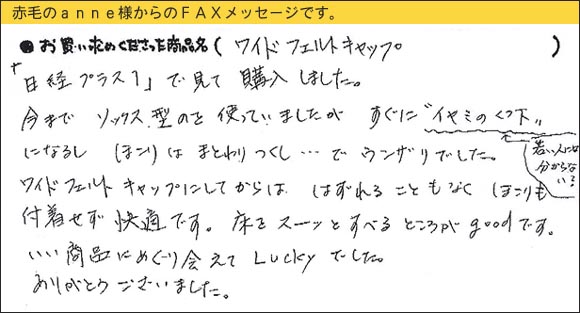 赤毛のａｎｎｅ様からのＦＡＸメッセージです。
●お買い求めくださった商品名( ワイドフェルトキャップ )
「日経プラス1」で見て購入しました。
今まで ソックス型のを使っていましたが すぐに"イヤミのくつ下"
になるし ほこりは まとわりつくし…で ウンザリでした。
若い人には
分からない
る
ワイドフェルトキャップにしてからは はずれることもなく ほこりも
付着せず快適です。床をスーッとすべるところがgoodです。
いい商品にめぐり会えてLuckyでした。
ありがとうございました。